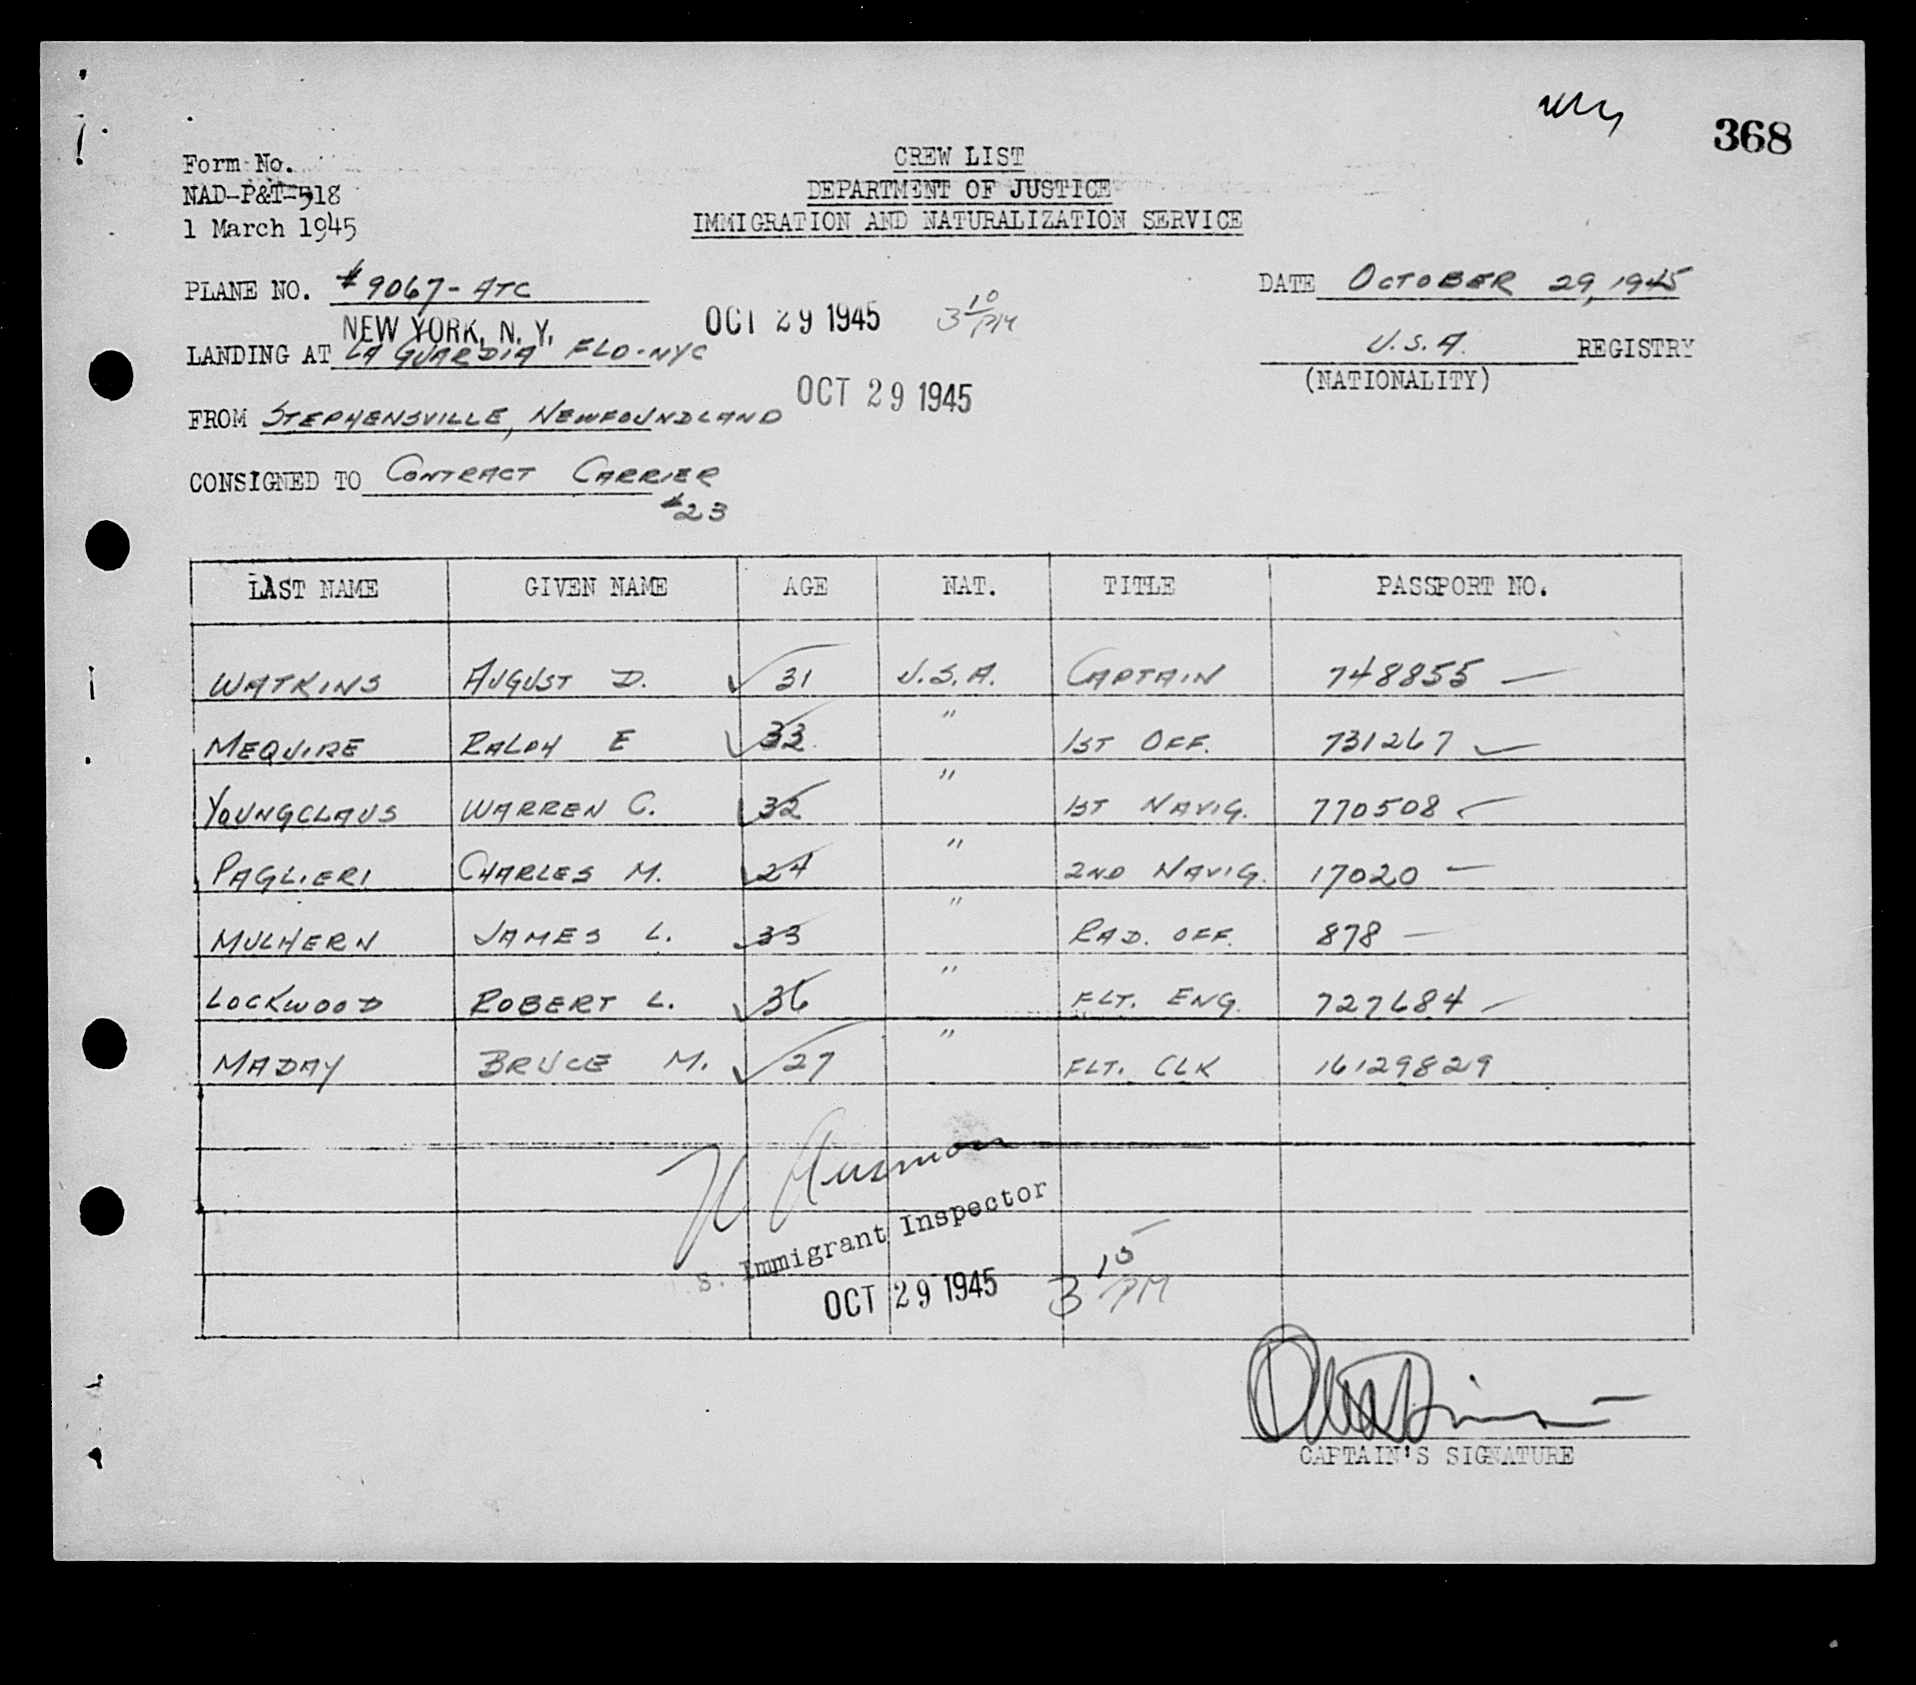 368
Form No.
NAD-P&T-518
1 March 1945
CREW LIST
DEPARTMENT OF JUSTICE
IMMIGRATION AND NATURALIZATION SERVICE
PLANE NO. #9067-ATC
DATE OCTOBER 29, 1945
NEW YORK, N. Y. OCT 29 1945 3 10 PM
LANDING AT LA GUARDIA FLD-NYC
U.S.A. REGISTRY
(NATIONALITY)
OCT 29 1945
FROM STEPHENSVILLE, NEWFOUNDLAND
CONSIGNED TO CONTRACT CARRIER
#23
LAST NAME GIVEN NAME AGE NAT. TITLE PASSPORT NO.
WATKINS AUGUST D. 31 U.S.A. CAPTAIN 748855
MEQUIRE RALPH E 33 " 1ST OFF. 731267
YOUNGCLAUS WARREN C. 32 " 1ST NAVIG. 770508
PAGLIERI CHARLES M. 24 " 2ND NAVIG. 17020
MULHERN JAMES L. 33 " RAD. OFF. 878
LOCKWOOD ROBERT L. 36 " FLT. ENG. 727684
MADAY BRUCE M. 27 " FLT. CLK 16129829
S. Immigrant Inspector
OCT 29 1945 3 15 PM
CAPTAIN'S SIGNATURE